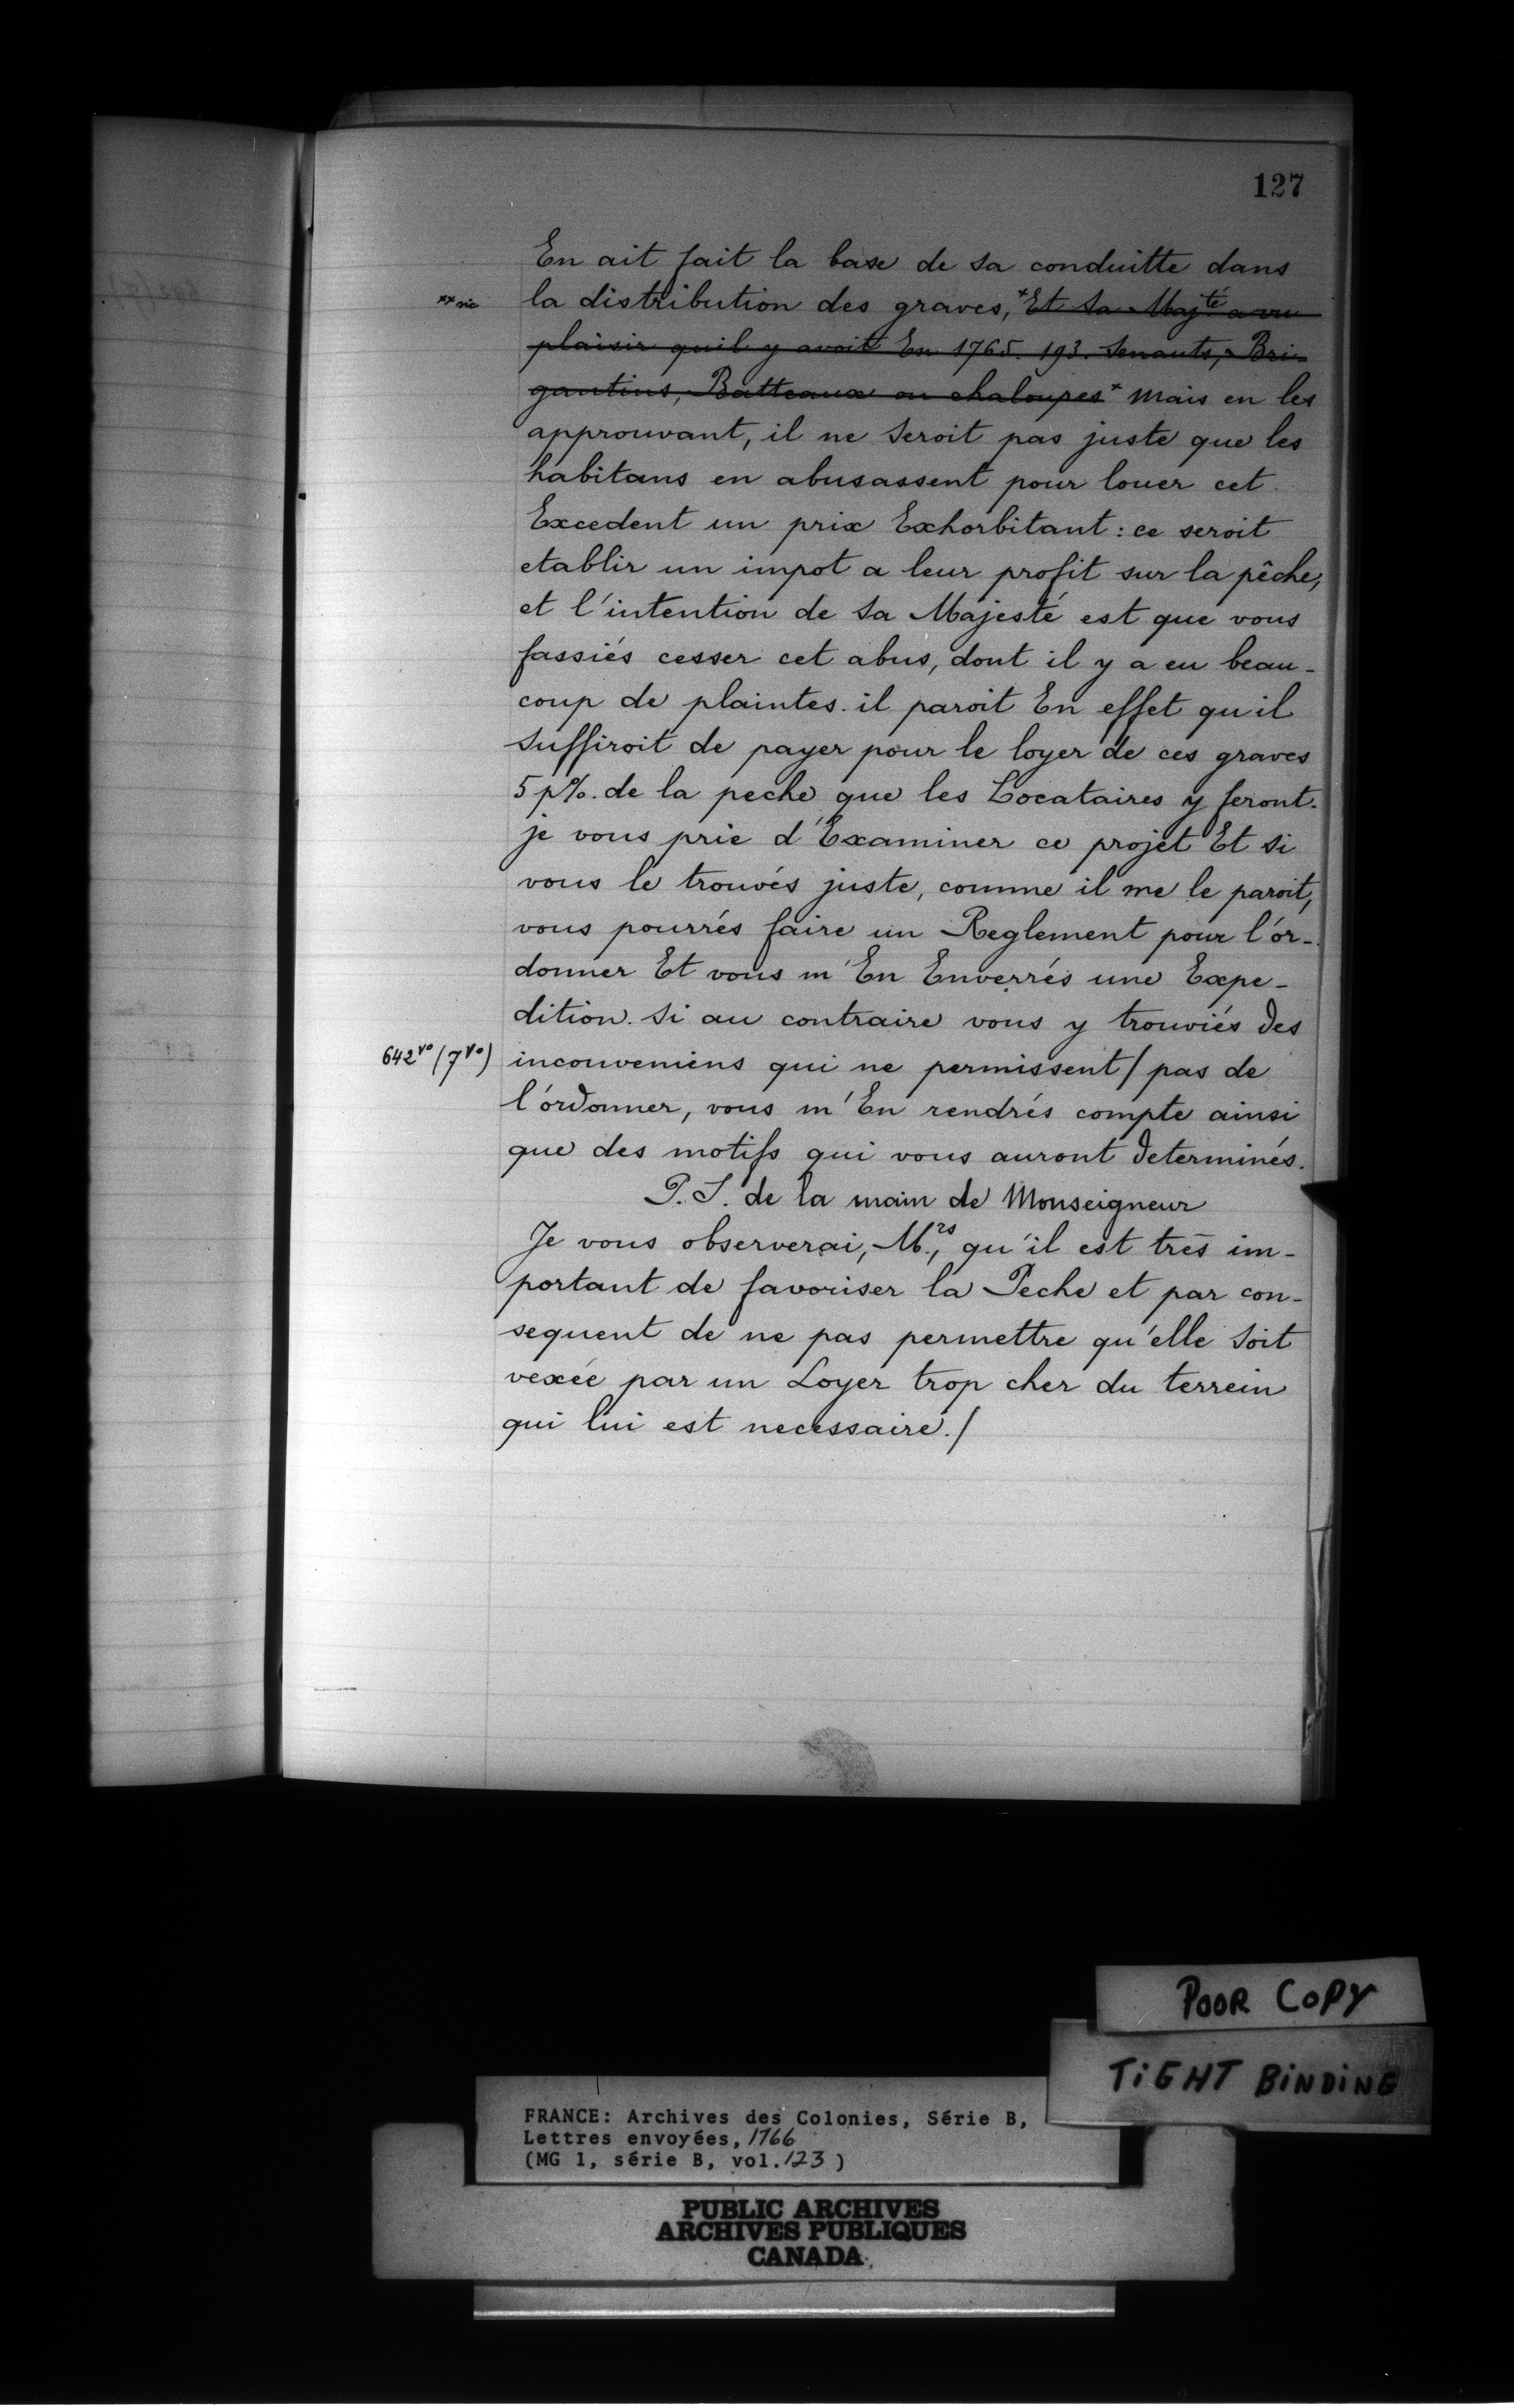 127
En ait fait la base de sa conduitte dans
xx sic la distribution des graves, x Et sa Majté a vu
plaisir quil y avoit En 1765. 193. Senauts, Bri-
gantins, Batteaux ou chaloupes x mais en les
approuvant, il ne seroit pas juste que les
habitans en abusassent pour louer cet
Excedent un prix Exhorbitant : ce seroit
etablir un impot a leur profit sur la pêche,
et l'intention de sa Majesté est que vous
fassiés cesser cet abus, dont il y a eu beau-
coup de plaintes. il paroit En effet qu'il
suffiroit de payer pour le loyer de ces graves
5 p%. de la peche que les Locataires y feront.
je vous prie d'Examiner ce projet Et si
vous le trouvés juste, comme il me le paroit,
vous pourrés faire un Reglement pour l'or-
donner Et vous m'En Enverrés une Expe-
dition. si au contraire vous y trouviés des
642vo (7vo) inconveniens qui ne permissent / pas de
l'ordonner, vous m'En rendrés compte ainsi
que des motifs qui vous auront determinés.
P. S. de la main de Monseigneur
Je vous observerai, M.rs, qu'il est très im-
portant de favoriser la Peche et par con-
sequent de ne pas permettre qu'elle soit
vexée par un Loyer trop cher du terrein
qui lui est necessaire. /
POOR COPY
TIGHT BINDING
FRANCE: Archives des Colonies, Série B,
Lettres envoyées, 1766
(MG 1, série B, vol. 123 )
PUBLIC ARCHIVES
ARCHIVES PUBLIQUES
CANADA